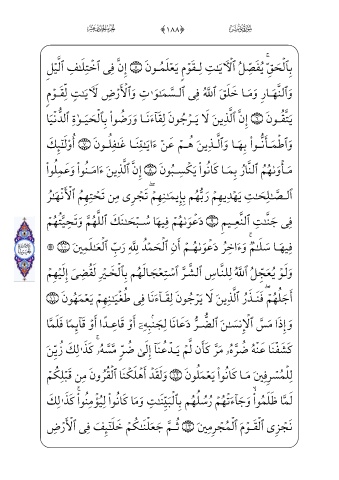 ﴿١٨٨﴾
بِالْحَقِّ ۚ يُفَصِّلُ الْآيَاتِ لِقَوْمٍ يَعْلَمُونَ ۝ إِنَّ فِى اخْتِلَٰفِ الَّيْلِ
وَالنَّهَارِ وَمَا خَلَقَ اللَّهُ فِى السَّمَٰوَٰتِ وَالْأَرْضِ لَءَايَٰتٍ لِّقَوْمٍ
يَتَّقُونَ ۝ إِنَّ الَّذِينَ لَا يَرْجُونَ لِقَآءَنَا وَرَضُوا بِالْحَيَوٰةِ الدُّنْيَا
وَاطْمَأَنُّوا بِهَا وَالَّذِينَ هُمْ عَنْ ءَايَٰتِنَا غَٰفِلُونَ ۝ أُولَٰٓئِكَ
مَأْوَىٰهُمُ النَّارُ بِمَا كَانُوا يَكْسِبُونَ ۝ إِنَّ الَّذِينَ ءَامَنُوا وَعَمِلُوا
الصَّٰلِحَٰتِ يَهْدِيهِمْ رَبُّهُم بِإِيمَٰنِهِمْ ۖ تَجْرِى مِن تَحْتِهِمُ الْأَنْهَٰرُ
فِى جَنَّٰتِ النَّعِيمِ ۝ دَعْوَىٰهُمْ فِيهَا سُبْحَٰنَكَ اللَّهُمَّ وَتَحِيَّتُهُمْ
فِيهَا سَلَٰمٌ ۚ وَءَاخِرُ دَعْوَىٰهُمْ أَنِ الْحَمْدُ لِلَّهِ رَبِّ الْعَٰلَمِينَ ۝ ۞
وَلَوْ يُعَجِّلُ اللَّهُ لِلنَّاسِ الشَّرَّ اسْتِعْجَالَهُم بِالْخَيْرِ لَقُضِىَ إِلَيْهِمْ
أَجَلُهُمْ ۖ فَنَذَرُ الَّذِينَ لَا يَرْجُونَ لِقَآءَنَا فِى طُغْيَٰنِهِمْ يَعْمَهُونَ ۝
وَإِذَا مَسَّ الْإِنسَٰنَ الضُّرُّ دَعَانَا لِجَنبِهِۦٓ أَوْ قَاعِدًا أَوْ قَآئِمًا فَلَمَّا
كَشَفْنَا عَنْهُ ضُرَّهُۥ مَرَّ كَأَن لَّمْ يَدْعُنَآ إِلَىٰ ضُرٍّ مَّسَّهُۥ ۚ كَذَٰلِكَ زُيِّنَ
لِلْمُسْرِفِينَ مَا كَانُوا يَعْمَلُونَ ۝ وَلَقَدْ أَهْلَكْنَا الْقُرُونَ مِن قَبْلِكُمْ
لَمَّا ظَلَمُوا ۙ وَجَآءَتْهُمْ رُسُلُهُم بِالْبَيِّنَٰتِ وَمَا كَانُوا لِيُؤْمِنُوا ۚ كَذَٰلِكَ
نَجْزِى الْقَوْمَ الْمُجْرِمِينَ ۝ ثُمَّ جَعَلْنَٰكُمْ خَلَٰٓئِفَ فِى الْأَرْضِ